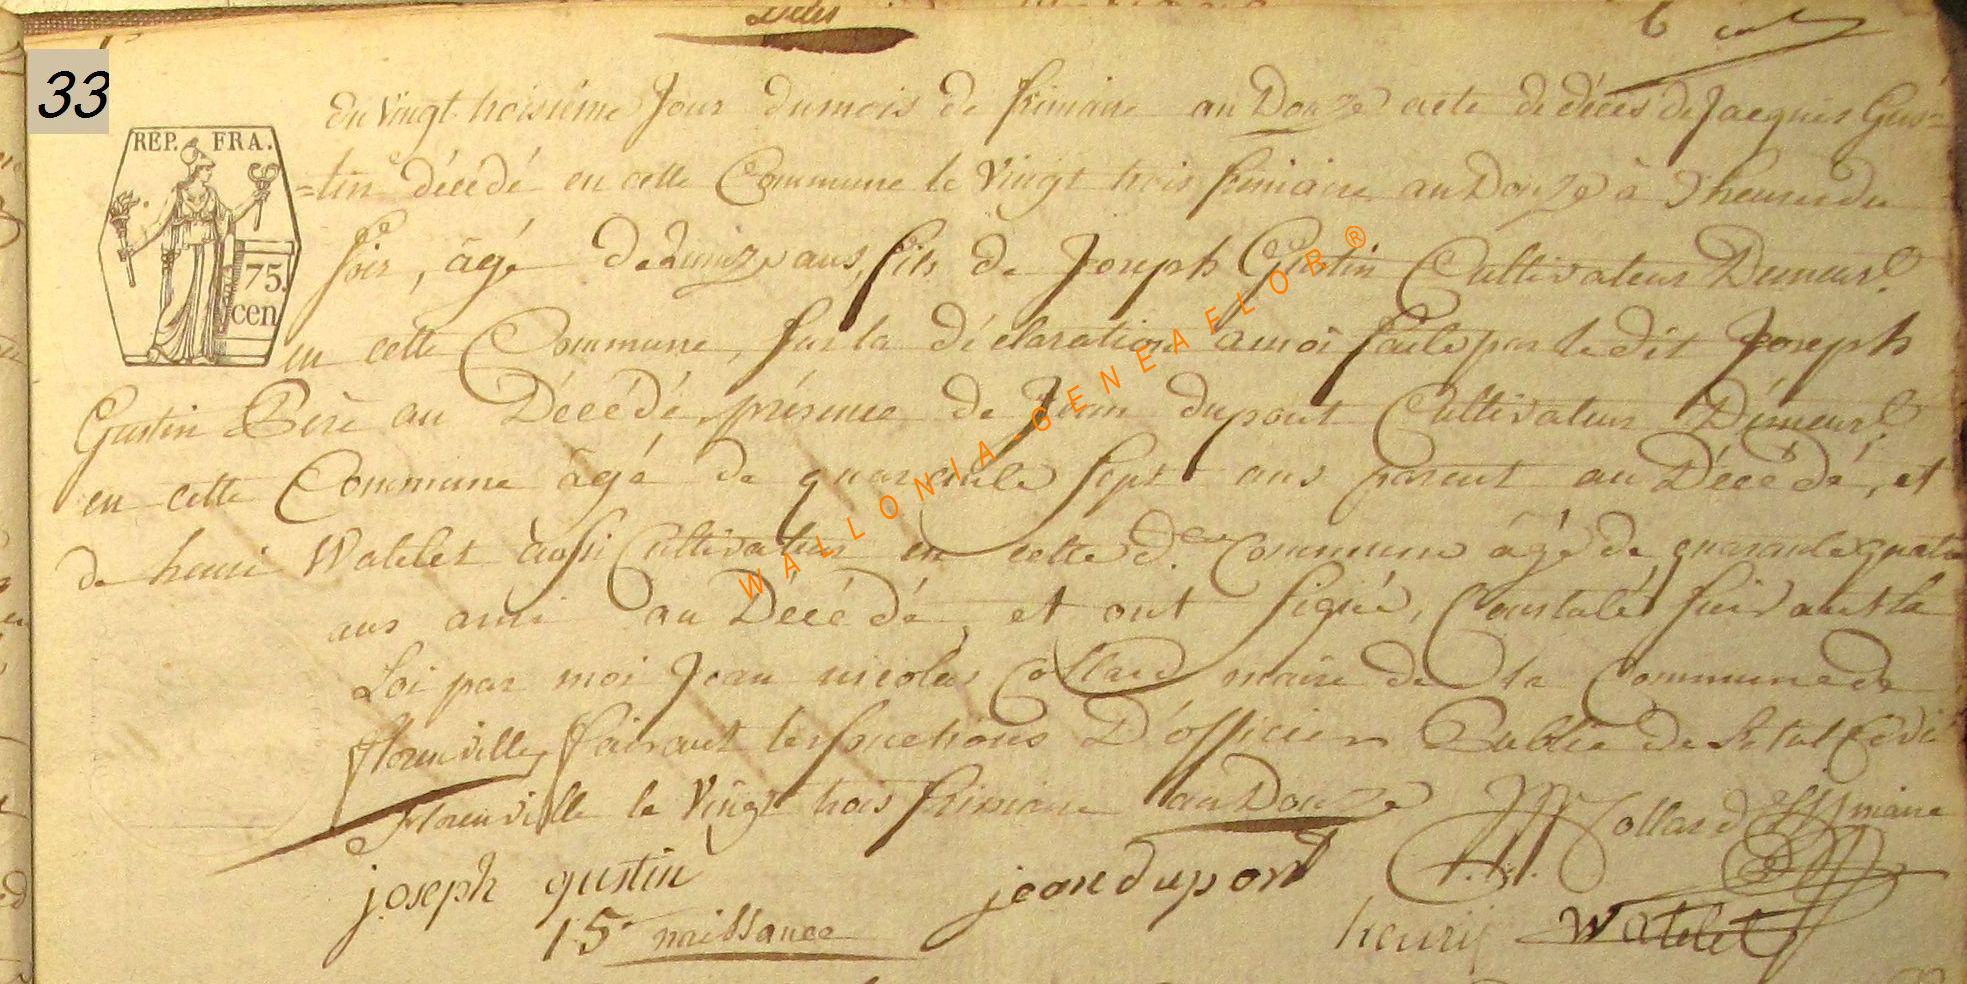 33
REP. FRA.
75.
cen
du Vingt troisième Jour du mois de frimaire an Douze acte de décès de Jacques Gus=
=tin décédé en cette Commune le Vingt trois frimaire an Douze à heures du
soir, âgé de quinze ans, fils de Joseph Gustin Cultivateur Demeurt.
en cette Commune, sur la déclaration a moi faite par le dit Joseph
Gustin Père au Décédé, présence de Jean dupont Cultivateur Demeurt.
en cette Commune âgé de quarante sept ans parent au Décédé, et
de henri Watelet aussi Cultivateur en cette d. Commune âgé de quarante quatre
ans ami au Décédé, et ont signé, Constaté suivant la
Loi par moi Jean nicolas Collard maire de la Commune de
florenville, faisant les fonctions D'officier Public de Letat Civil
florenville le Vingt trois frimaire an Douze Collard maire
joseph gustin jean dupont
henrij Watelet
15e naissance
WALLONIA-GENEAFLOR®